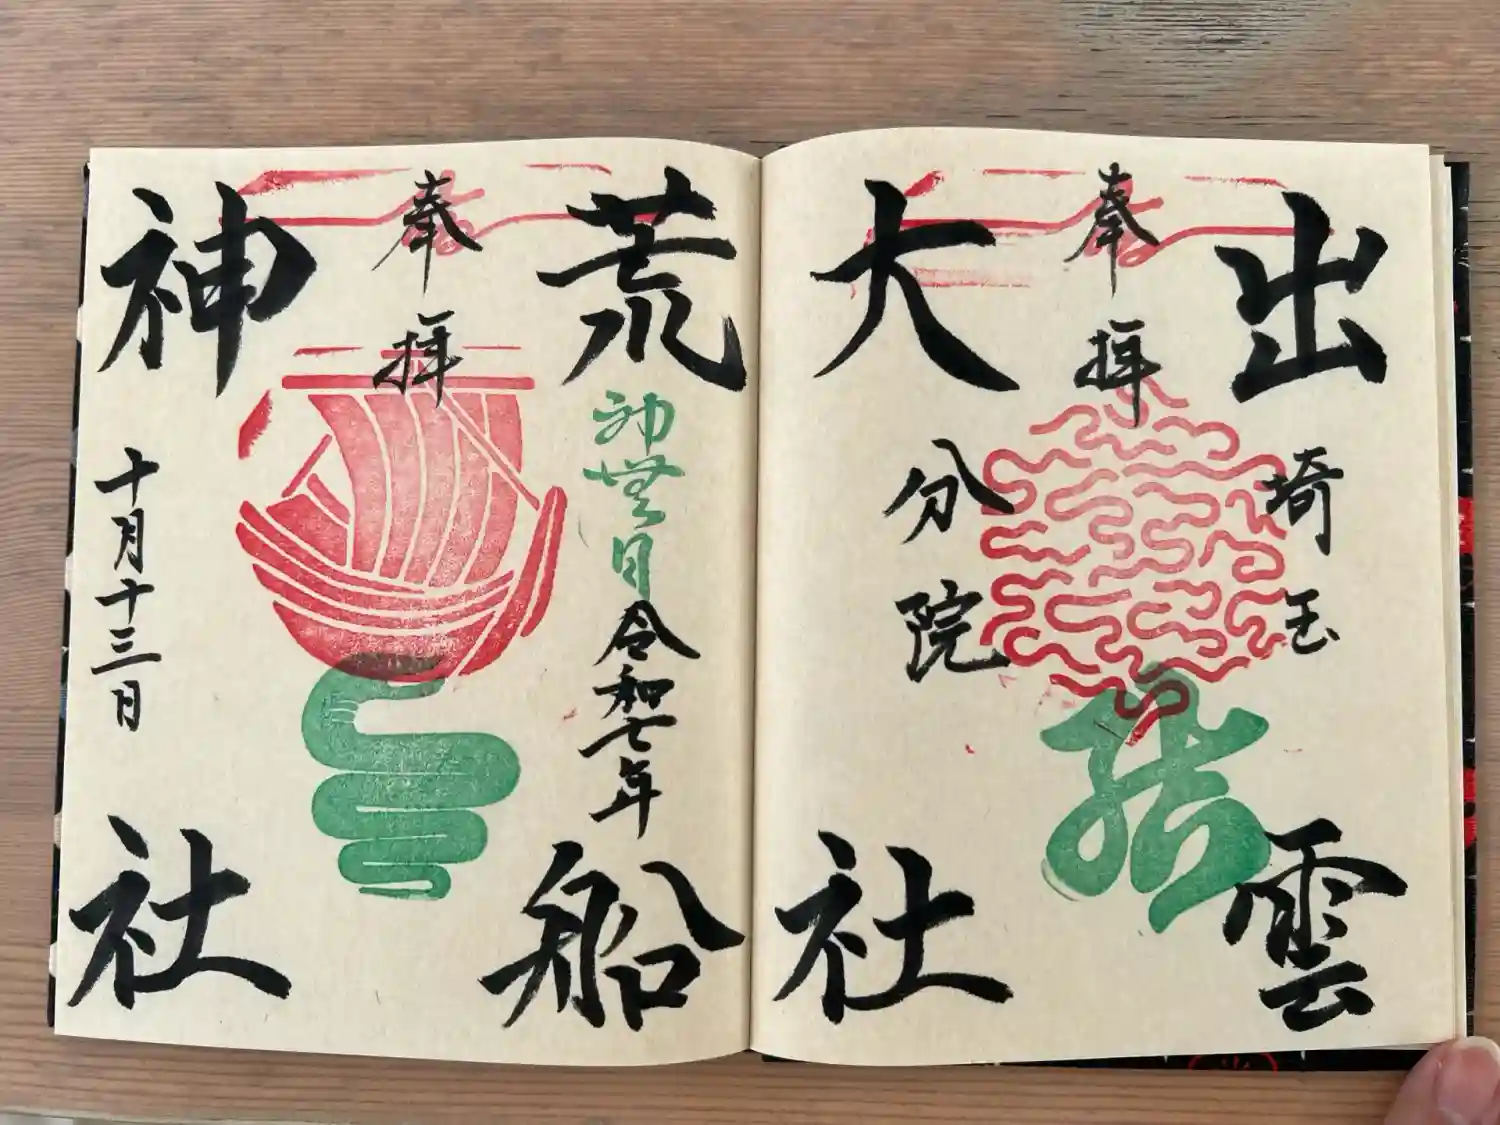 出雲
埼玉
奉拝
結
大社
分院
荒船
神無月
令和七年
奉拝
神社
十月十三日